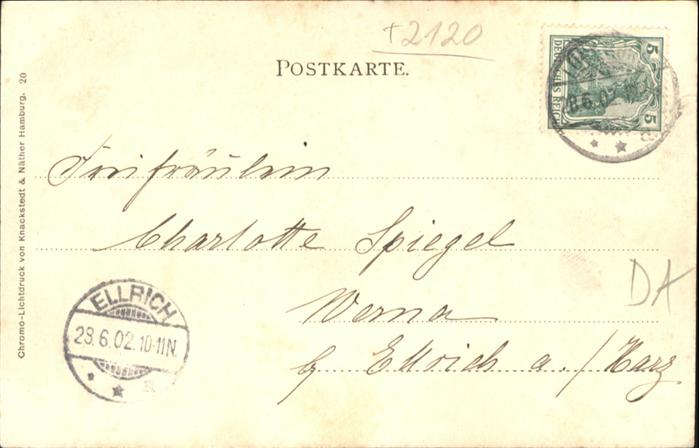 +2120
POSTKARTE.
5 DEUTSCHES REICH 5
8.6.02
Freifräulein
Charlotte Spiegel
Werna
b/ Ellrich a./Harz
DA
ELLRICH
28.6.02.10-11N.
a
Chromo-Lichtdruck von Knackstedt & Näther Hamburg. 20